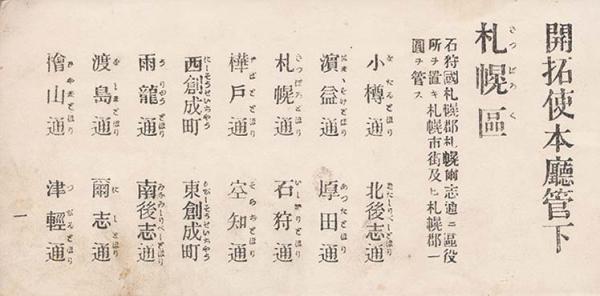 開拓使本廳管下
札幌區
さつぽろく
石狩國札幌郡札幌爾志通ニ區役
所ヲ置キ札幌市街及ヒ札幌郡一
圓ヲ管ス
小樽通 北後志通
濱益通 厚田通
札幌通 石狩通
樺戸通 空知通
西創成町 東創成町
雨龍通 南後志通
渡島通 爾志通
檜山通 津輕通
一